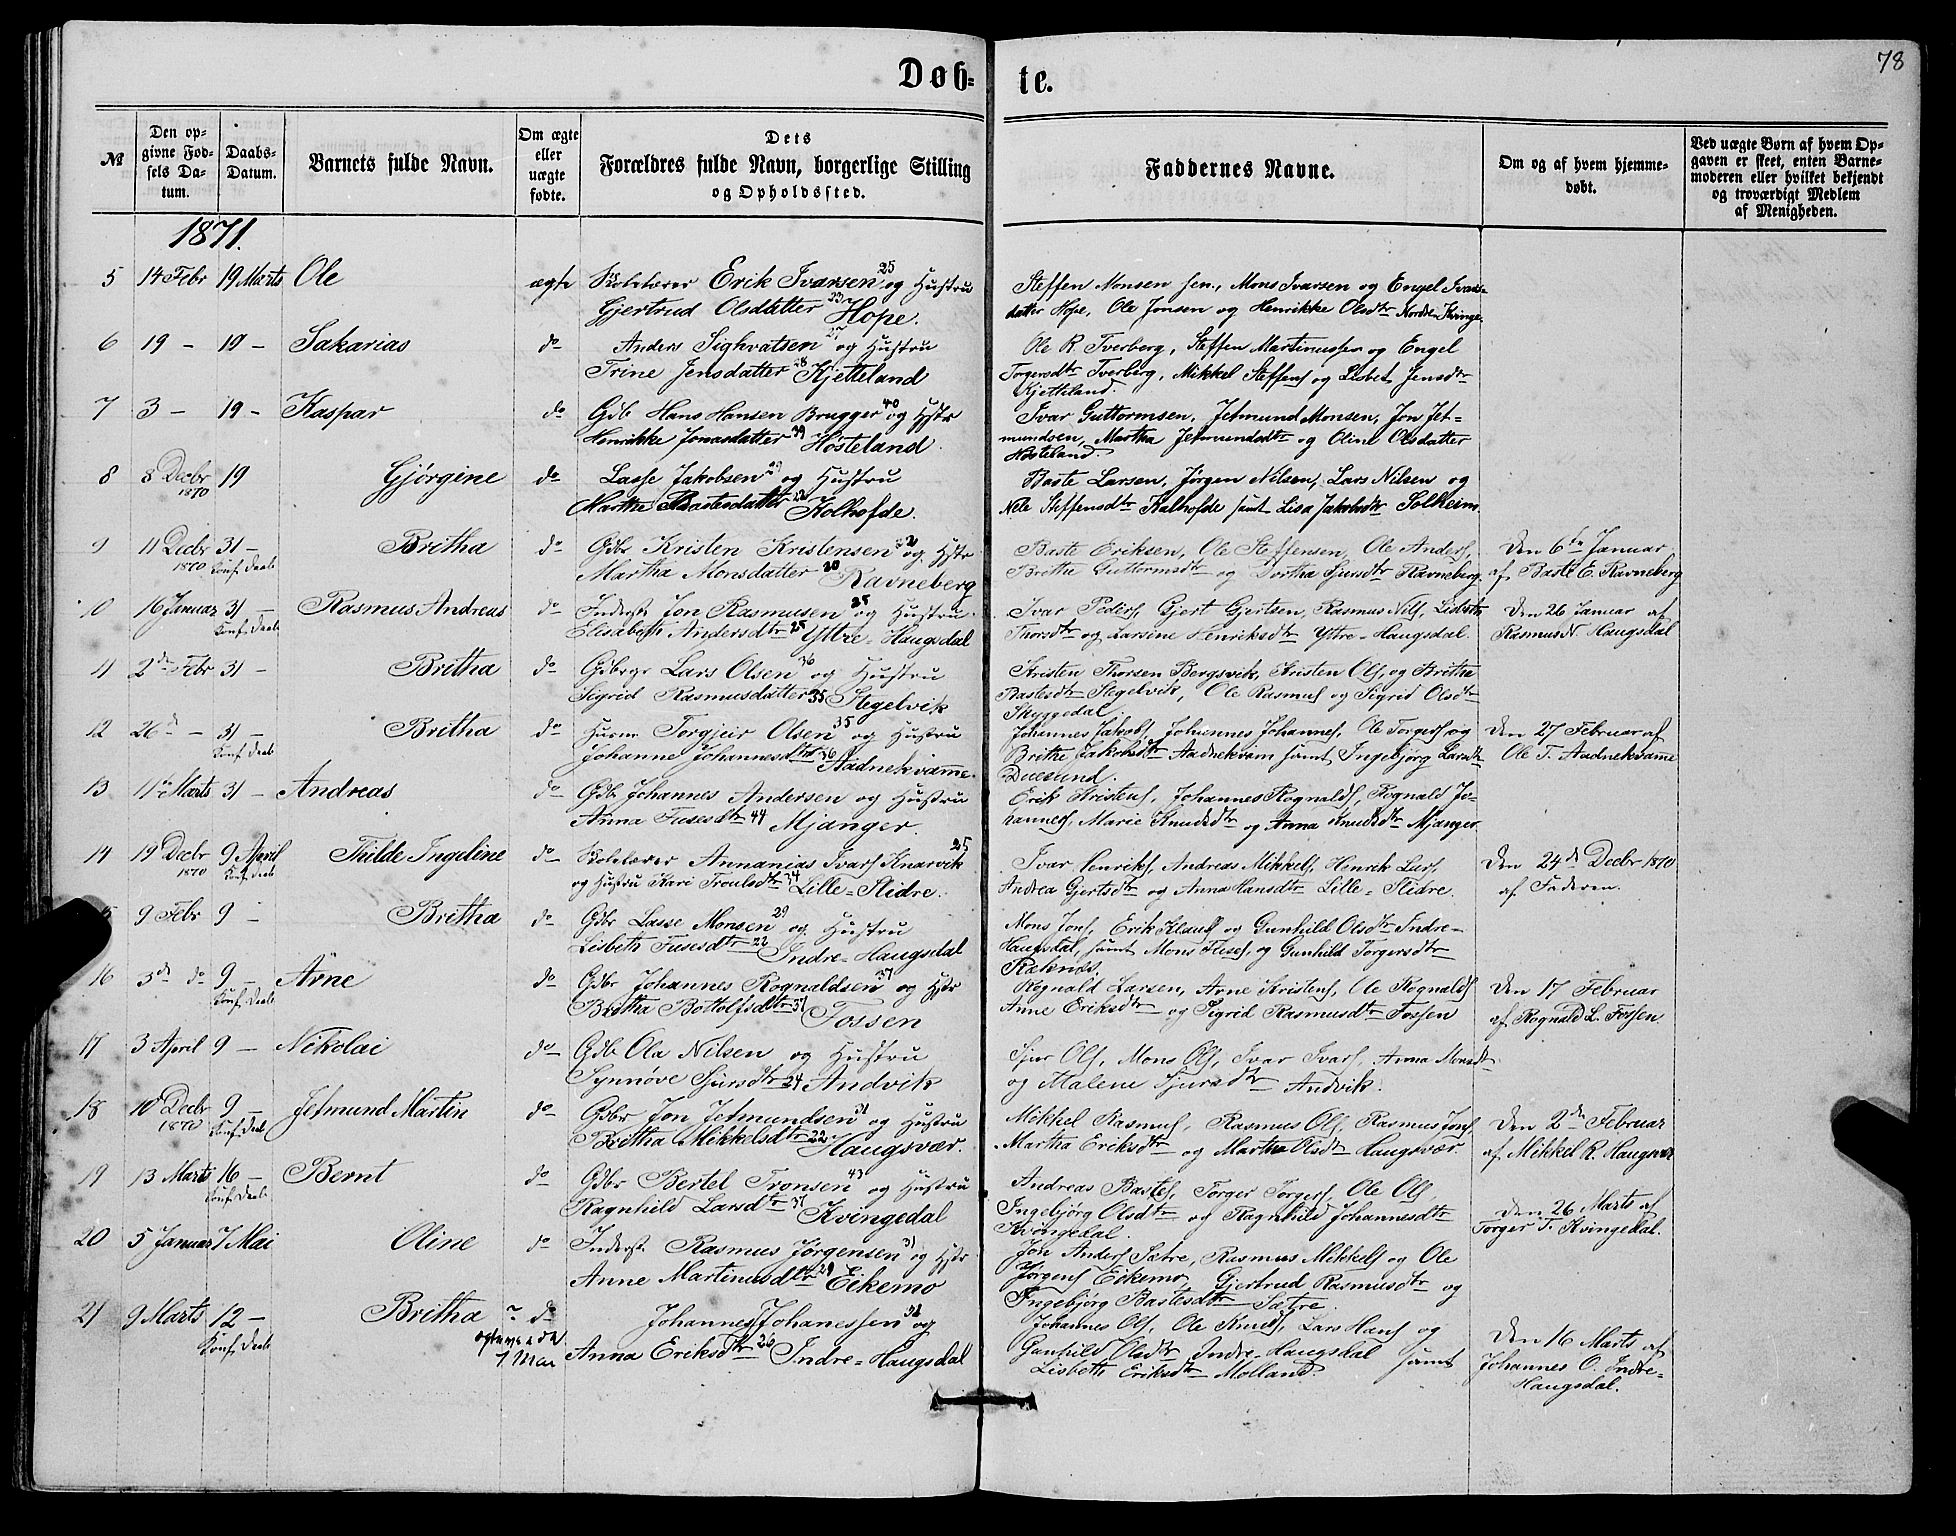 78
Døb-
te.
№
Den op-
givne Fød-
sels Da-
tum.
Daabs-
Datum.
Barnets fulde Navn.
Om ægte
eller
uægte
fødte.
Dets
Forældres fulde Navn, borgerlige Stilling
og Opholdssted.
Faddernes Navne.
Om og af hvem hjemme-
døbt.
Ved uægte Børn af hvem Op-
gaven er skeet, enten Barne-
moderen eller hvilket bekjendt
og troværdigt Medlem
af Menigheden.
1871.
5 14 Febr 19 Marts Ole ægte Skolelærer Erik Ivarsen 25 og Hustru
Gjertrud Olsdatter 23 Hope.
Steffen Monsen sen., Mons Ivarsen og Engel Ivars-
datter Hope, Ole Jonsen og Henrikke Olsdtr Nordre Kvinge.
6 19 – 19 – Sakarias do Anders Sighvatsen 27 og Hustru
Trine Jensdatter 28 Kjetteland
Ole R. Tverberg, Steffen Martinussen og Engel
Torgersdtr Tverberg, Mikkel Steffens og Lisbet Jensdtr
Kjetteland.
7 3 – 19 – Kaspar do Gdb Hans Hansen Brugger 40 og Hstr
Henrikke Jonasdatter 39 Hosteland.
Ivar Guttormsen, Jetmund Monsen, Jon Jet-
mundsen, Martha Jetmundsdtr og Oline Olsdatter
Hosteland
8 8 Decbr 1870 19 Gjørgine do Lasse Jakobsen og Hustru
Marthe Bastesdatter Kolhofde.
Baste Larsen, Jørgen Nilsen, Lars Nilsen og
Nele Steffensdtr Kalhofde samt Lisa Jakobsdtr Solheim.
9 11 Decbr 1870 31 – Konf. Daab Britha do Gdbr Kristen Kristensen og Hstr
Martha Monsdatter 30 Ravneberg
Baste Eriksen, Ole Steffensen, Ole Anders,
Brithe Guttormsdtr og Dortha Sjursdtr Ravneberg.
Den 6te Januar
af Baste E. Ravneberg
10 16 Januar 31 – Konf. Daab Rasmus Andreas do Inderst Jon Rasmusen 25 og Hustru
Elisabeth Andersdtr 25 Yttre-Haugsdal
Ivar Peders, Gjert Gjertsen, Rasmus Nils, Lisbeth
Thorsdtr og Larsine Henriksdtr Yttre-Haugsdal.
Den 26 Januar af
Rasmus N. Haugsdal
11 2den Febr 31 – Britha do Gdbrgr Lars Olsen 36 og Hustru
Sigrid Rasmusdatter 35 Stegelvik
Kristen Thorsen Bergsvik, Kristen Ols, og Britha
Bastesdtr Stegelvik, Ole Rasmus og Sigrid Olsdtr
Skyggedal.
12 26de – 31 – Konf. Daab Britha do Husm Torgjeir Olsen 35 og Hustru
Johanne Johannesdtr 36 Aadnekvamme.
Johannes Jakobs, Johannes Johannes, Ole Torgers og
Brithe Jakobsdtr Aadnekvam samt Ingebjørg Larsdtr
Duesund.
Den 27 Februar af
Ole T. Aadnekvamme
13 11te Marts 31 – Andreas do Gdb Johannes Andersen og Hustru
Anna Fusesdtr 44 Mjanger.
Erik Kristens, Johannes Rognalds, Rognald Jo-
hannes, Marie Knudsdtr og Anna Knudsdtr Mjanger.
14 19 Decbr 1870 9 April Konf. Daab Thilde Ingeline do Skolelærer Annanias Ivars Knarvik 25
og Hustru Kari Troulsdtr 34 Lille-Slidre.
Ivar Henriks, Andreas Mikkels, Henrik Lars,
Andrea Gjertsdtr og Anna Hansdtr Lille-Slidre.
Den 24de Decbr 1870
af Faderen.
5 9 Febr 9 – Britha do Gdbr Lasse Monsen 29 og Hustru
Lisbeth Fusesdtr 22 Indre-Haugsdal
Mons Jons, Erik Klaus og Gunhild Olsdtr Indre-
Haugsdal, samt Mons Fuses, og Gunhild Torgersdtr
Ræknæs.
16 3de do 9 – Konf. Daab Arne do Gdbr Johannes Rognaldsen 37 og Hstr
Britha Botholfsdtr 37 Fossen
Rognald Larsen, Arne Kristens, Ole Rognalds
Anne Eriksdtr og Sigrid Rasmusdtr Fossen
Den 17 Februar
af Rognald L. Fossen.
17 3 April 9 – Nikolai do Gdb Ola Nilsen og Hustru
Synnøve Sjursdtr 24 Andvik
Sjur Ols, Mons Ols, Ivar Ivars, Anna Monsdtr
og Malene Sjursdtr Andvik.
18 10 Decbr 1870 9 – Konf. Daab Jetmund Martin do Gdbr Jon Jetmundsen 31 og Hustru
Britha Mikkelsdtr 22 Haugsvær.
Mikkel Rasmus, Rasmus Ols, Rasmus Jons,
Martha Eriksdtr og Martha Olsdtr Haugsvær.
Den 2den Februar
af Mikkel R. Haugsvær
19 13 Marts 16 – Konf. Daab Bernt do Gdbr Bertel Tronsen 43 og Hustru
Ragnhild Larsdtr 37 Kvingedal
Andreas Bastes, Torger Torgers, Ole Ols,
Ingebjørg Olsdtr og Ragnhild Johannesdtr
Kvingedal.
Den 26 Marts af
Torger T. Kvingedal.
20 5 Januar 7 Mai Oline do Inderst Rasmus Jørgensen 31 og Hstr
Anne Martinusdtr 29 Eikemo
Jon Anders Sætre, Rasmus Mikkels og Ole
Jørgens Eikemo, Gjertrud Rasmusdtr og
Ingebjørg Bastesdtr Sætre.
21 9 Marts 12 – Konf. Daab Britha do
7 Mai
Johannes Johanessen 31 og
Anna Eriksdtr 26 Indre-Haugsdal
Johannes Ols, Ole Knuds, Lars Hans og
Gunhild Olsdtr Indre-Haugsdal samt
Lisbeth Eriksdtr Molland.
Den 16 Marts af
Johannes O. Indre-
Haugsdal.